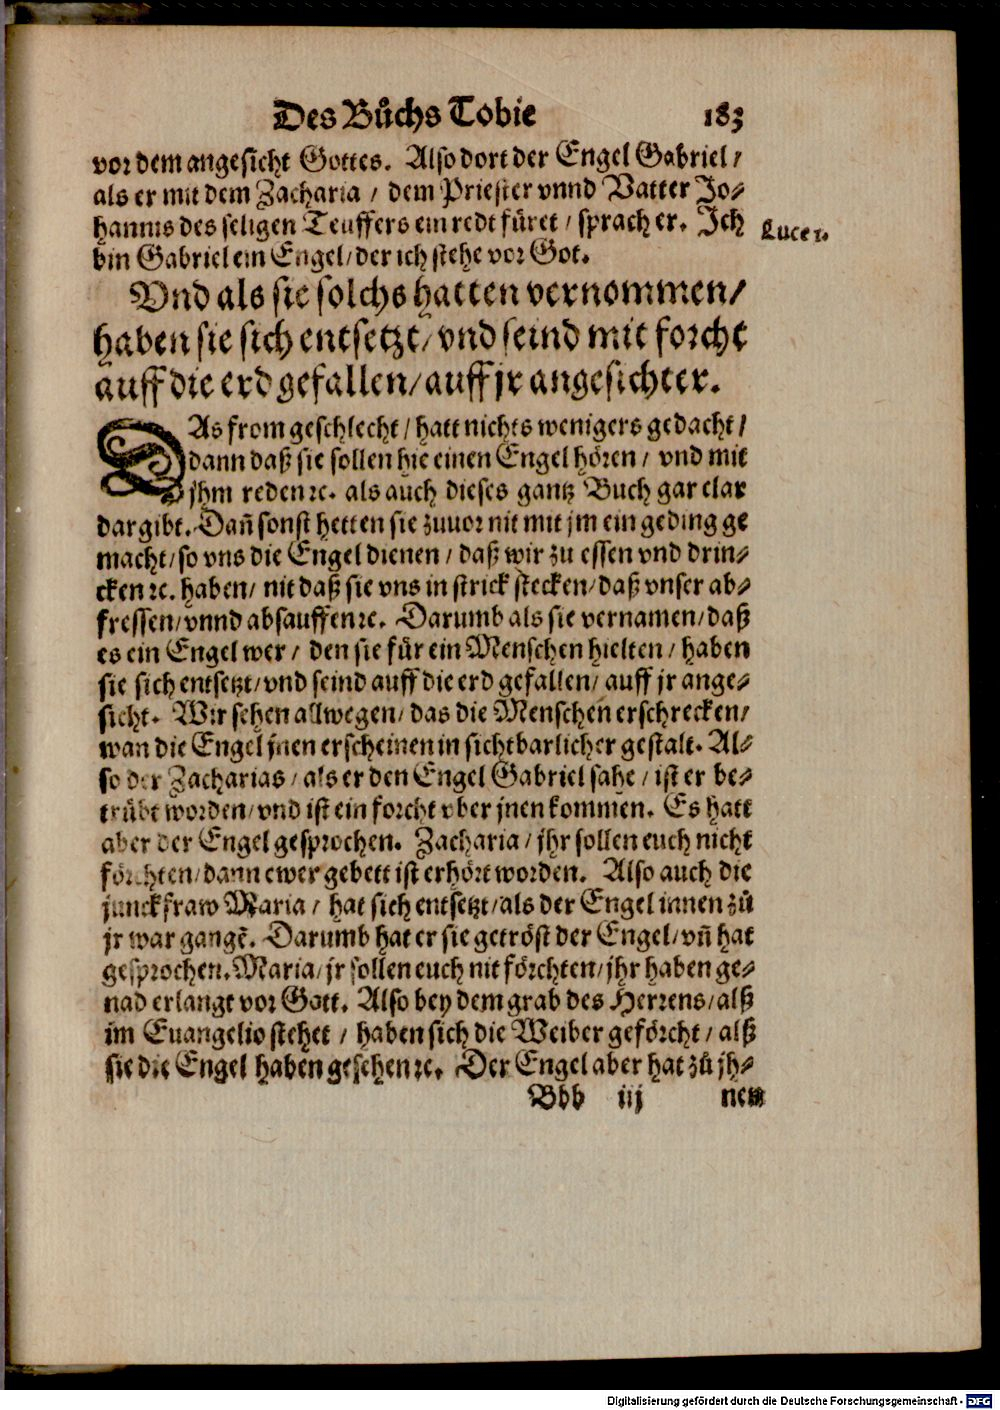 Des Bůchs Tobie 183
vor dem angesicht Gottes. Also dort der Engel Gabriel /
als er mit dem Zacharia / dem Priester vnnd Vatter Jo-
hannis des seligen Teuffers ein redt füret / sprach er. Ich
Luce 1.
bin Gabriel ein Engel / der ich stehe vor Got.
Vnd als sie solchs hatten vernommen /
haben sie sich entsetzt / vnd seind mit forcht
auff die erd gefallen / auff jr angesichter.
DAs from geschlecht / hatt nichts wenigers gedacht /
dann daß sie sollen hie einen Engel hören / vnd mit
jhm reden ꝛc. als auch dieses gantz Buch gar clar
dargibt. Dañ sonst hetten sie zuuor nit mit jm ein geding ge
macht / so vns die Engel dienen / daß wir zu essen vnd drin-
cken ꝛc. haben / nit daß sie vns in strick stecken / daß vnser ab-
fressen / vnnd absauffen ꝛc. Darumb als sie vernamen / daß
es ein Engel wer / den sie für ein Menschen hielten / haben
sie sich entsetzt / vnd seind auff die erd gefallen / auff jr ange-
sicht. Wir sehen allwegen / das die Menschen erschrecken /
wan die Engel jnen erscheinen in sichtbarlicher gestalt. Al-
so der Zacharias / als er den Engel Gabriel sahe / ist er be-
trübt worden / vnd ist ein forcht vber jnen kommen. Es hatt
aber der Engel gesprochen. Zacharia / jhr sollen euch nicht
förchten / dann ewer gebett ist erhört worden. Also auch die
junckfraw Maria / hat sich entsetzt / als der Engel innen zů
jr war gangẽ. Darumb hat er sie getröst der Engel / vñ hat
gesprochen. Maria / jr sollen euch nit förchten / jhr haben ge-
nad erlangt vor Gott. Also bey dem grab des Herrens / alß
im Euangelio stehet / haben sich die Weiber geförcht / alß
sie die Engel haben gesehen ꝛc. Der Engel aber hat zů jh-
Bbb iij nen
Digitalisierung gefördert durch die Deutsche Forschungsgemeinschaft - DFG